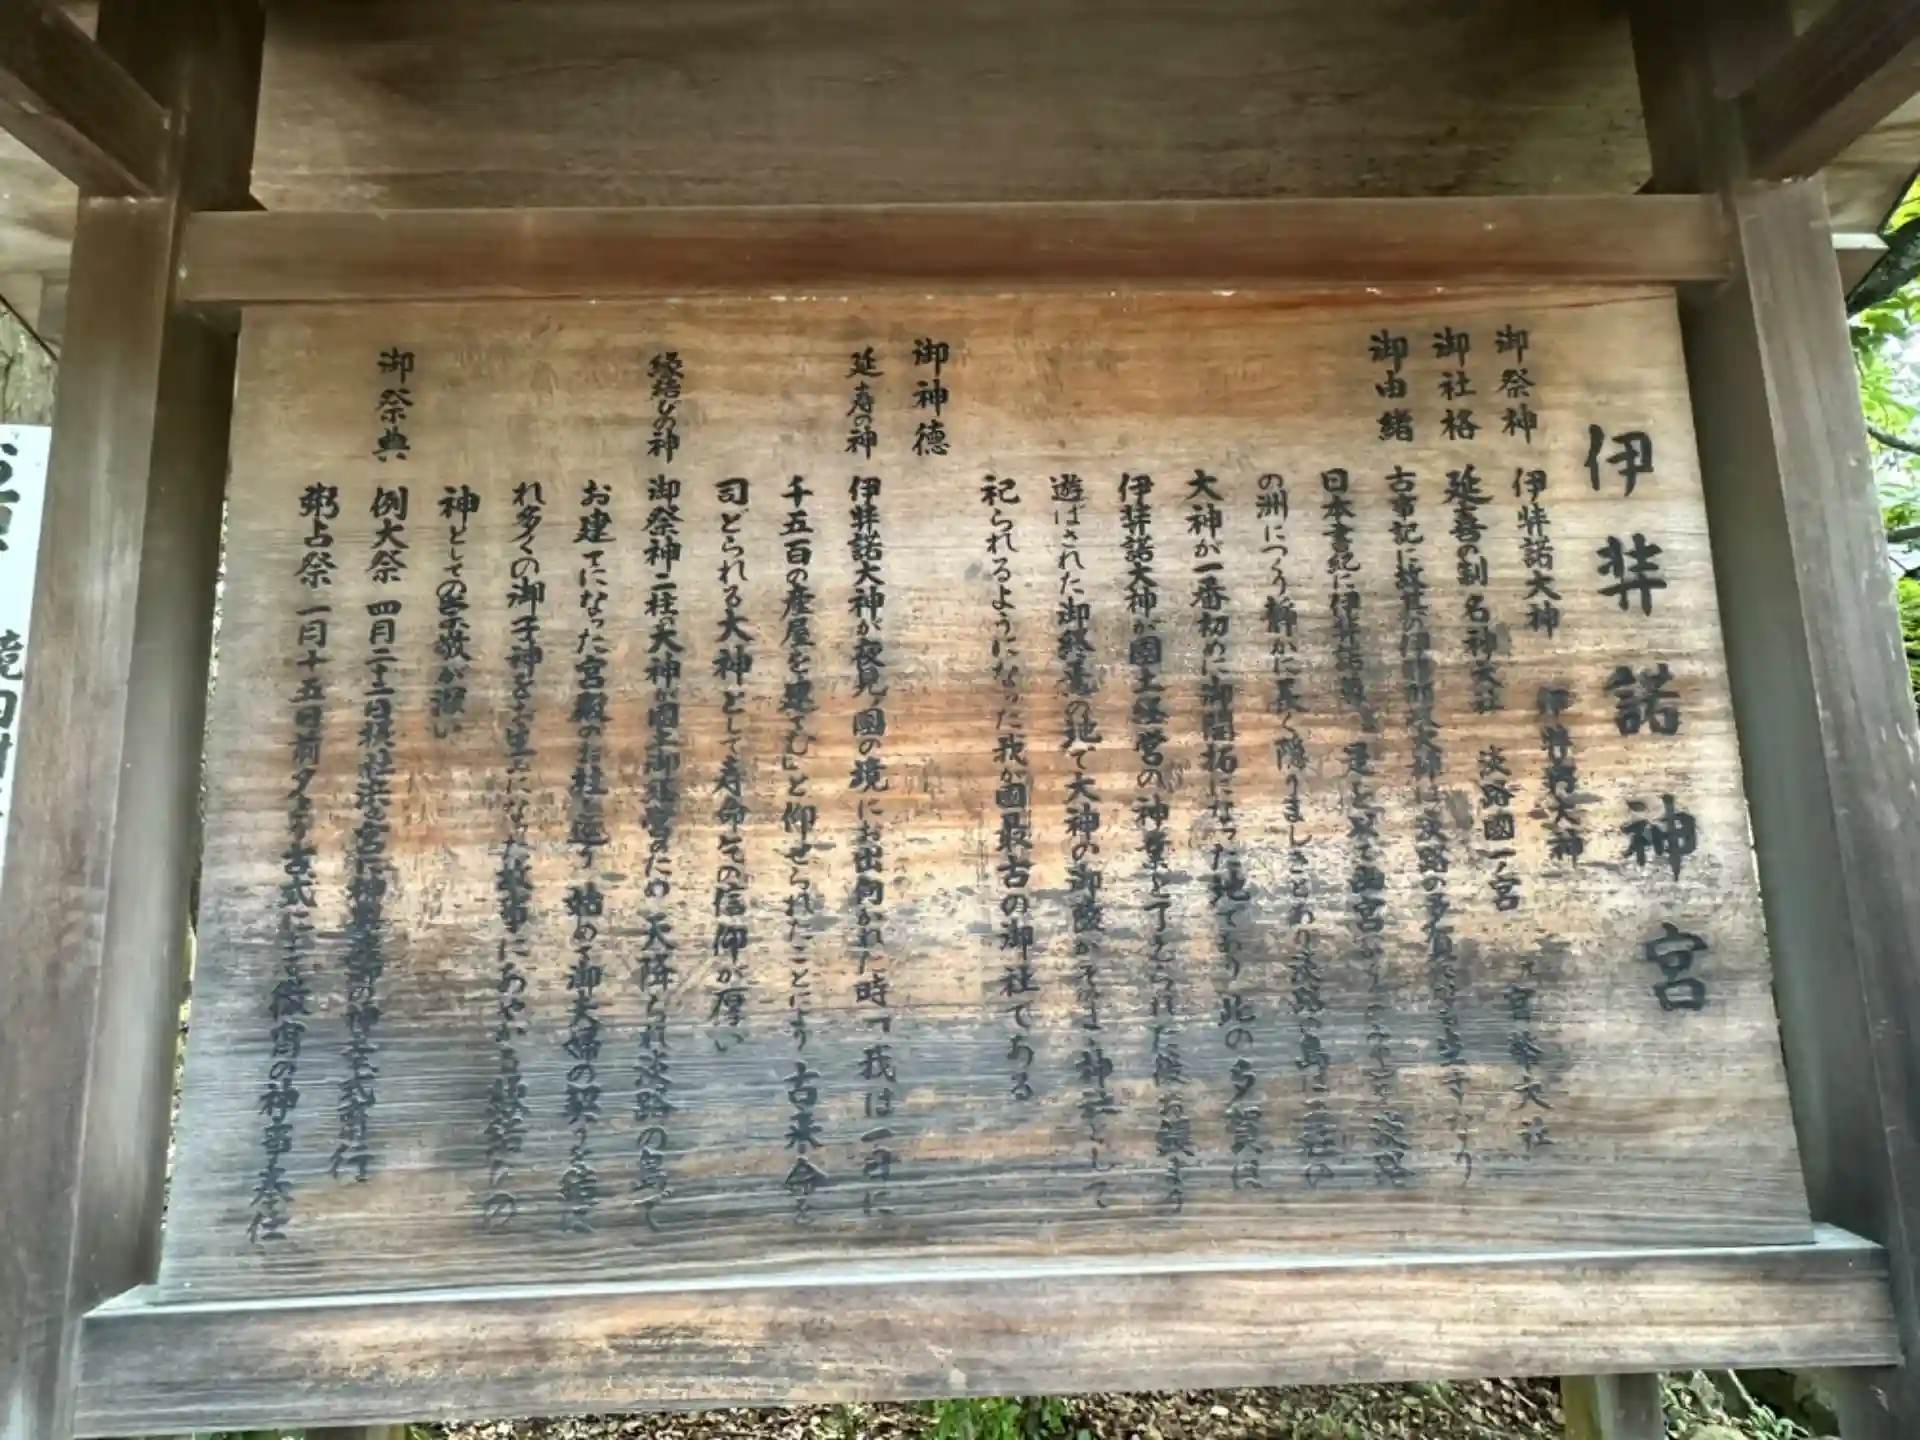 伊弉諾神宮
御祭神 伊弉諾大神 伊弉冉大神
御社格 延喜の制 名神大社 淡路國一ノ宮 元官幣大社
御由緒 古事記に故其の伊耶那岐大神は淡路の多賀になも坐すなり
日本書紀に伊弉諾尊 是を以て幽宮を 淡路
の洲につくり静かに長く隠りましきとあり淡路の島は二柱の
大神が一番初めに御開拓になった地であり 此の多賀は
伊弉諾大神が國土経営の神業を了えられた後お鎮まり
遊ばされた御終焉の地で大神の御陵がそのまゝ神社として
祀られるようになった我が國最古の御社である
御神徳
延寿の神 伊弉諾大神が夜見ノ國の境にお出向かれた時「我は一日に
千五百の産屋を建てむ」と仰せられたことにより 古来命を
司どられる大神として寿命乞の信仰が厚い
縁結びの神 御祭神二柱の大神が國土御経営のため 天降られ淡路の島で
お建てになった宮殿のお柱を廻り 始めて御夫婦の契りを結ば
れ多くの御子神をお生みになった故事にあやかる縁結びの
神としての崇敬が深い
御祭典 例大祭 四月二十二日 摂社浜の宮に神輿渡御の神幸式斎行
粥占祭 一月十五日前夕より古式による徹宵の神事奉仕